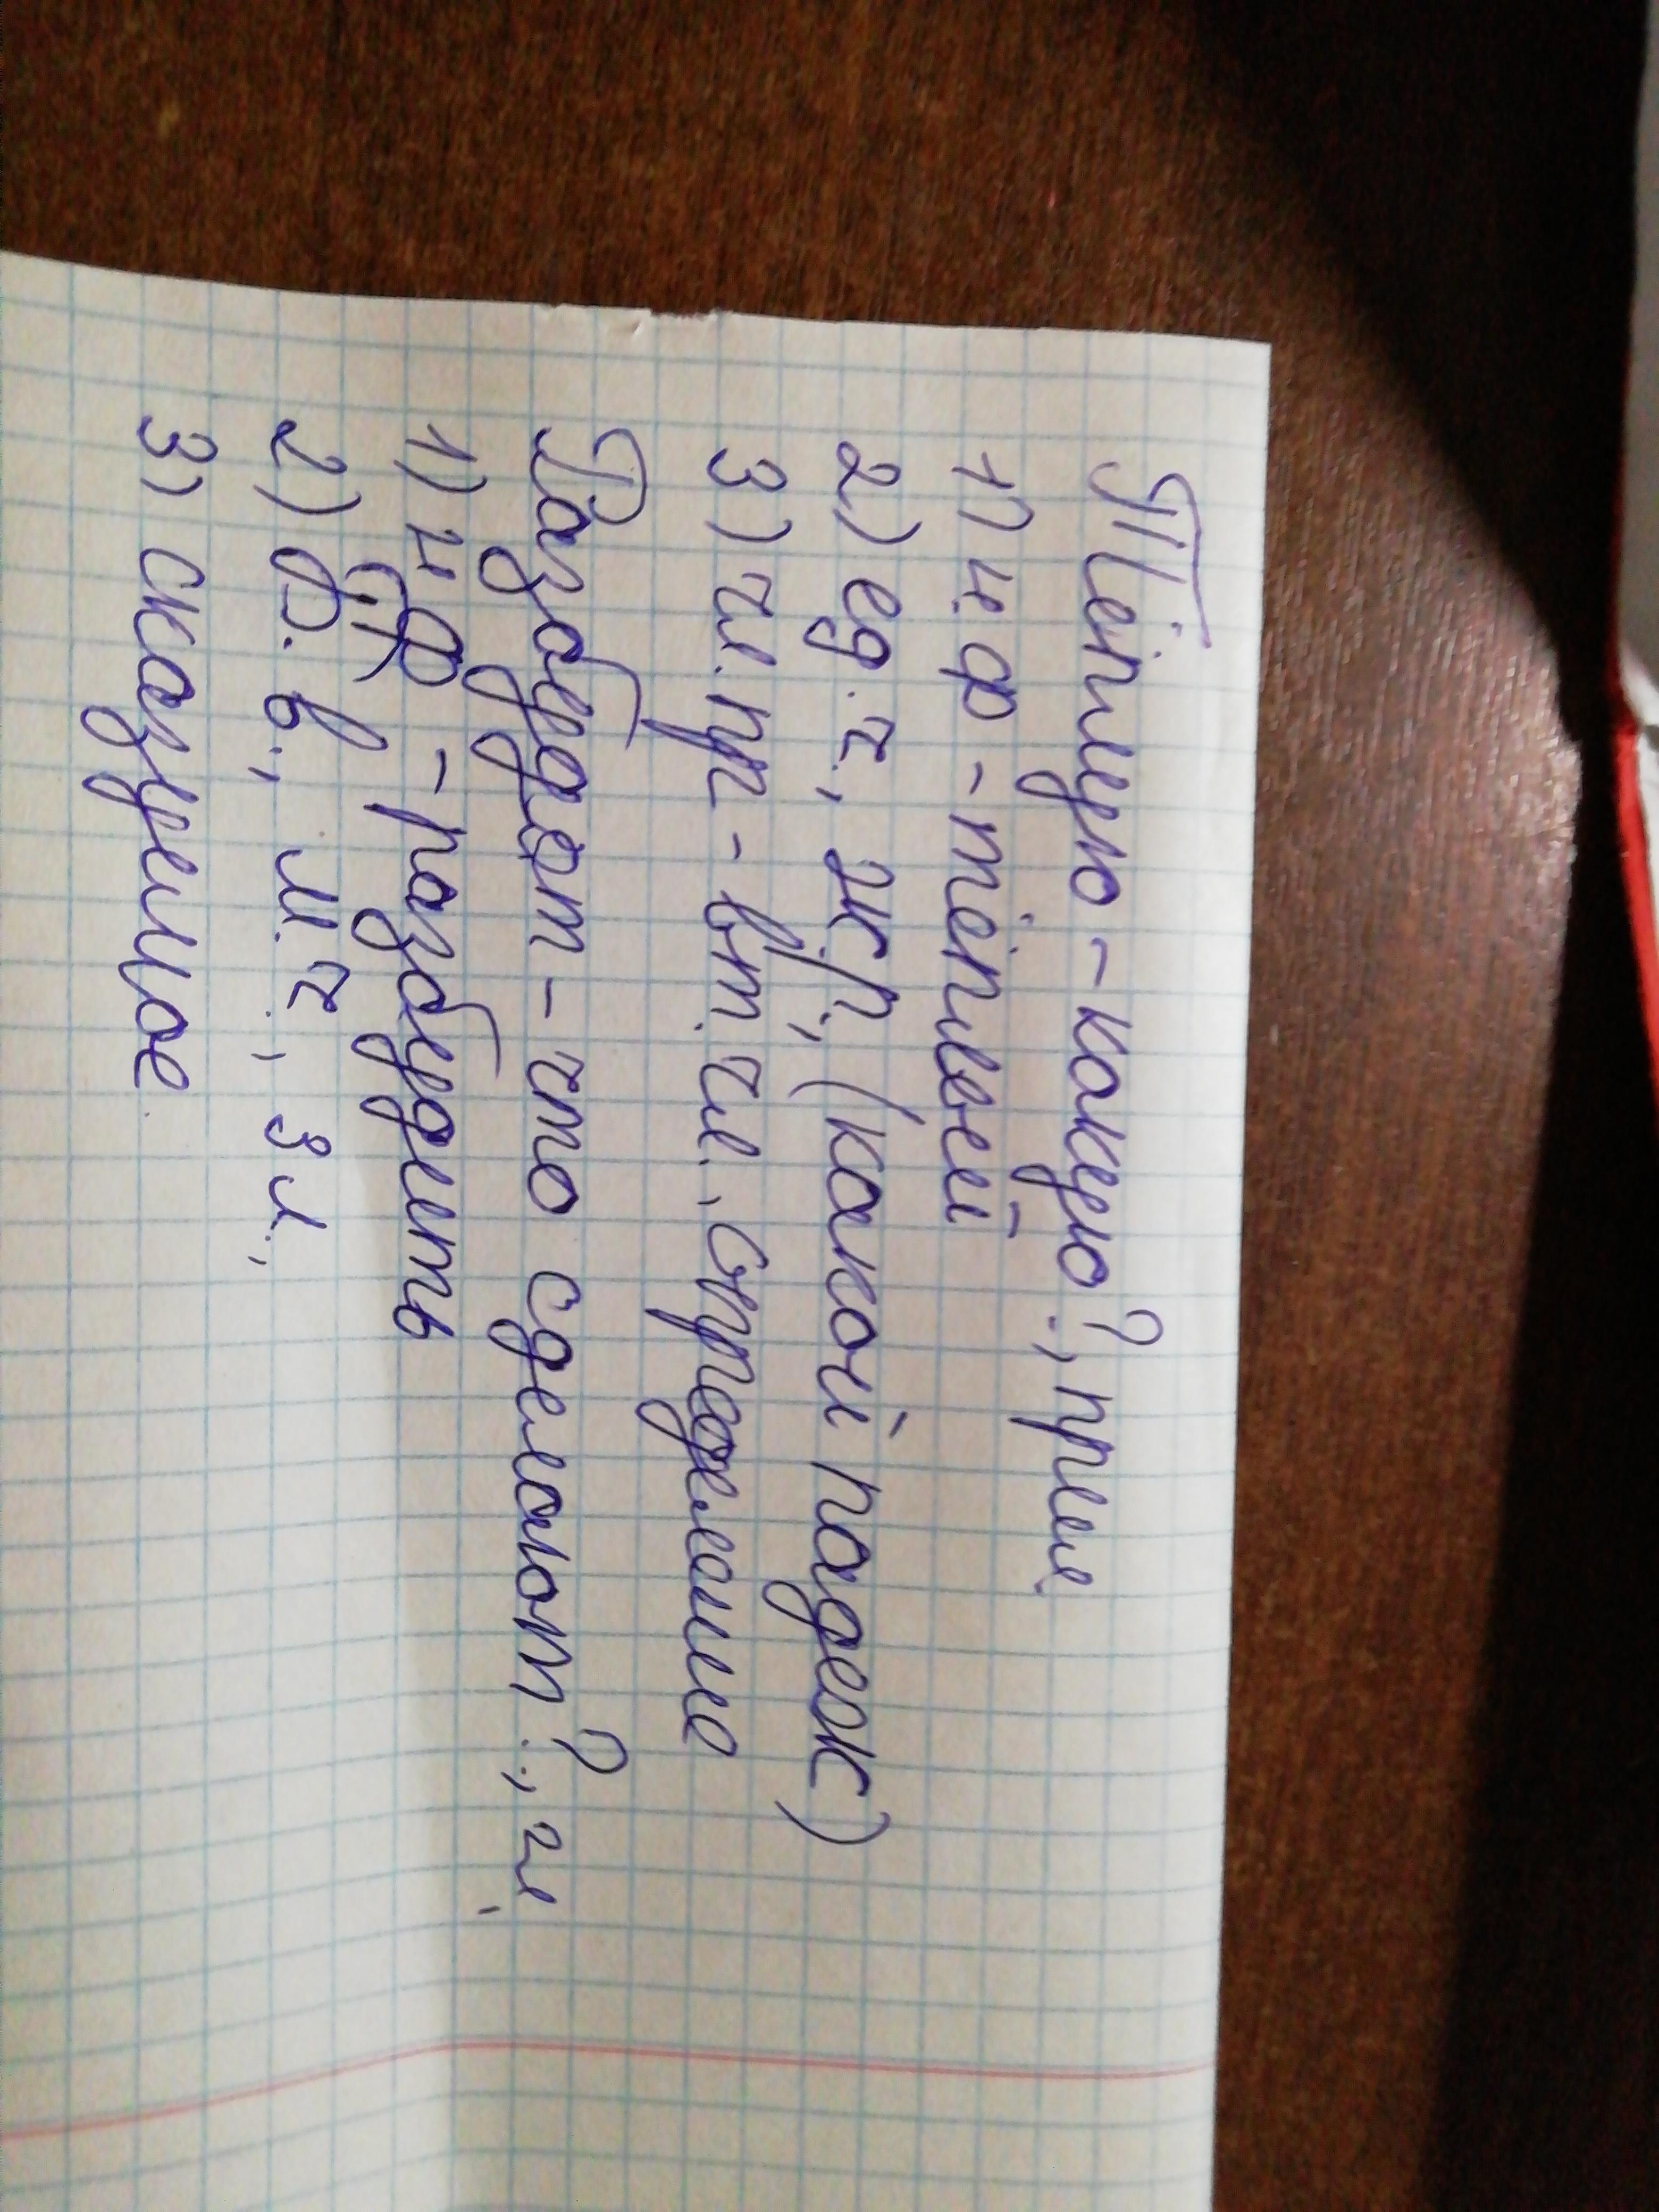 Тёплую - какую?, прил.
1) н.ф - тёплый
2) ед.ч., ж.р., (какой падеж)
3) чл.пр - вт.чл., определение
Разбудят - что сделают?, гл,
1) н.ф. - разбудить
2) б.в., м.ч., 3 л.,
3) сказуемое.